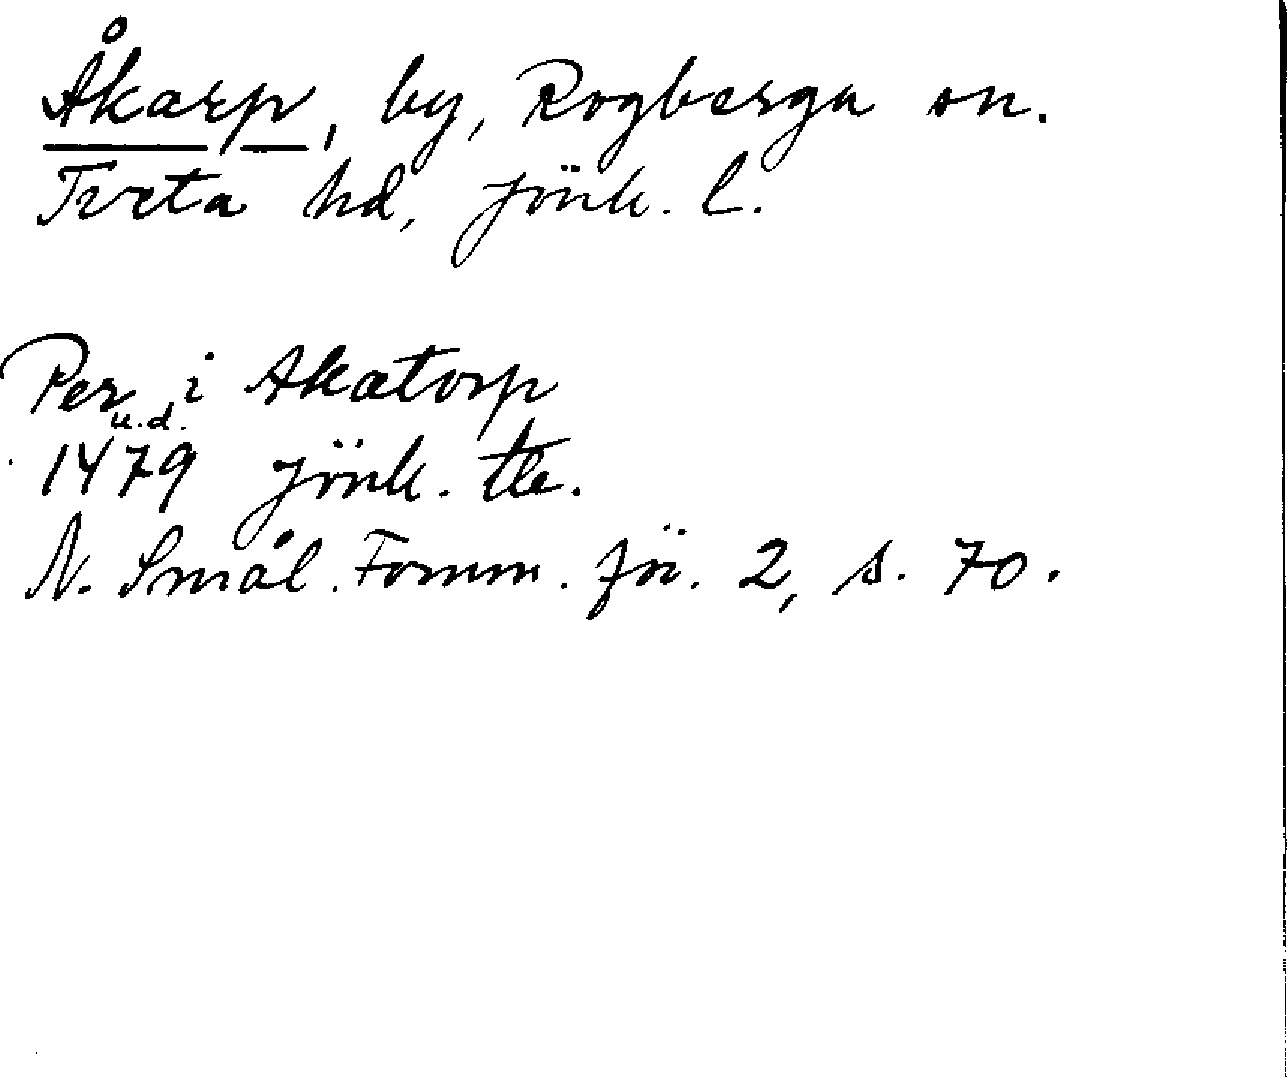 Åkarp, by, Rogberga sn.
Tveta hd, Jönk. l.
Per i Akatorp
u.d.
1479 Jönk. tb.
N. Smål. Fornm. för. 2, s. 70.